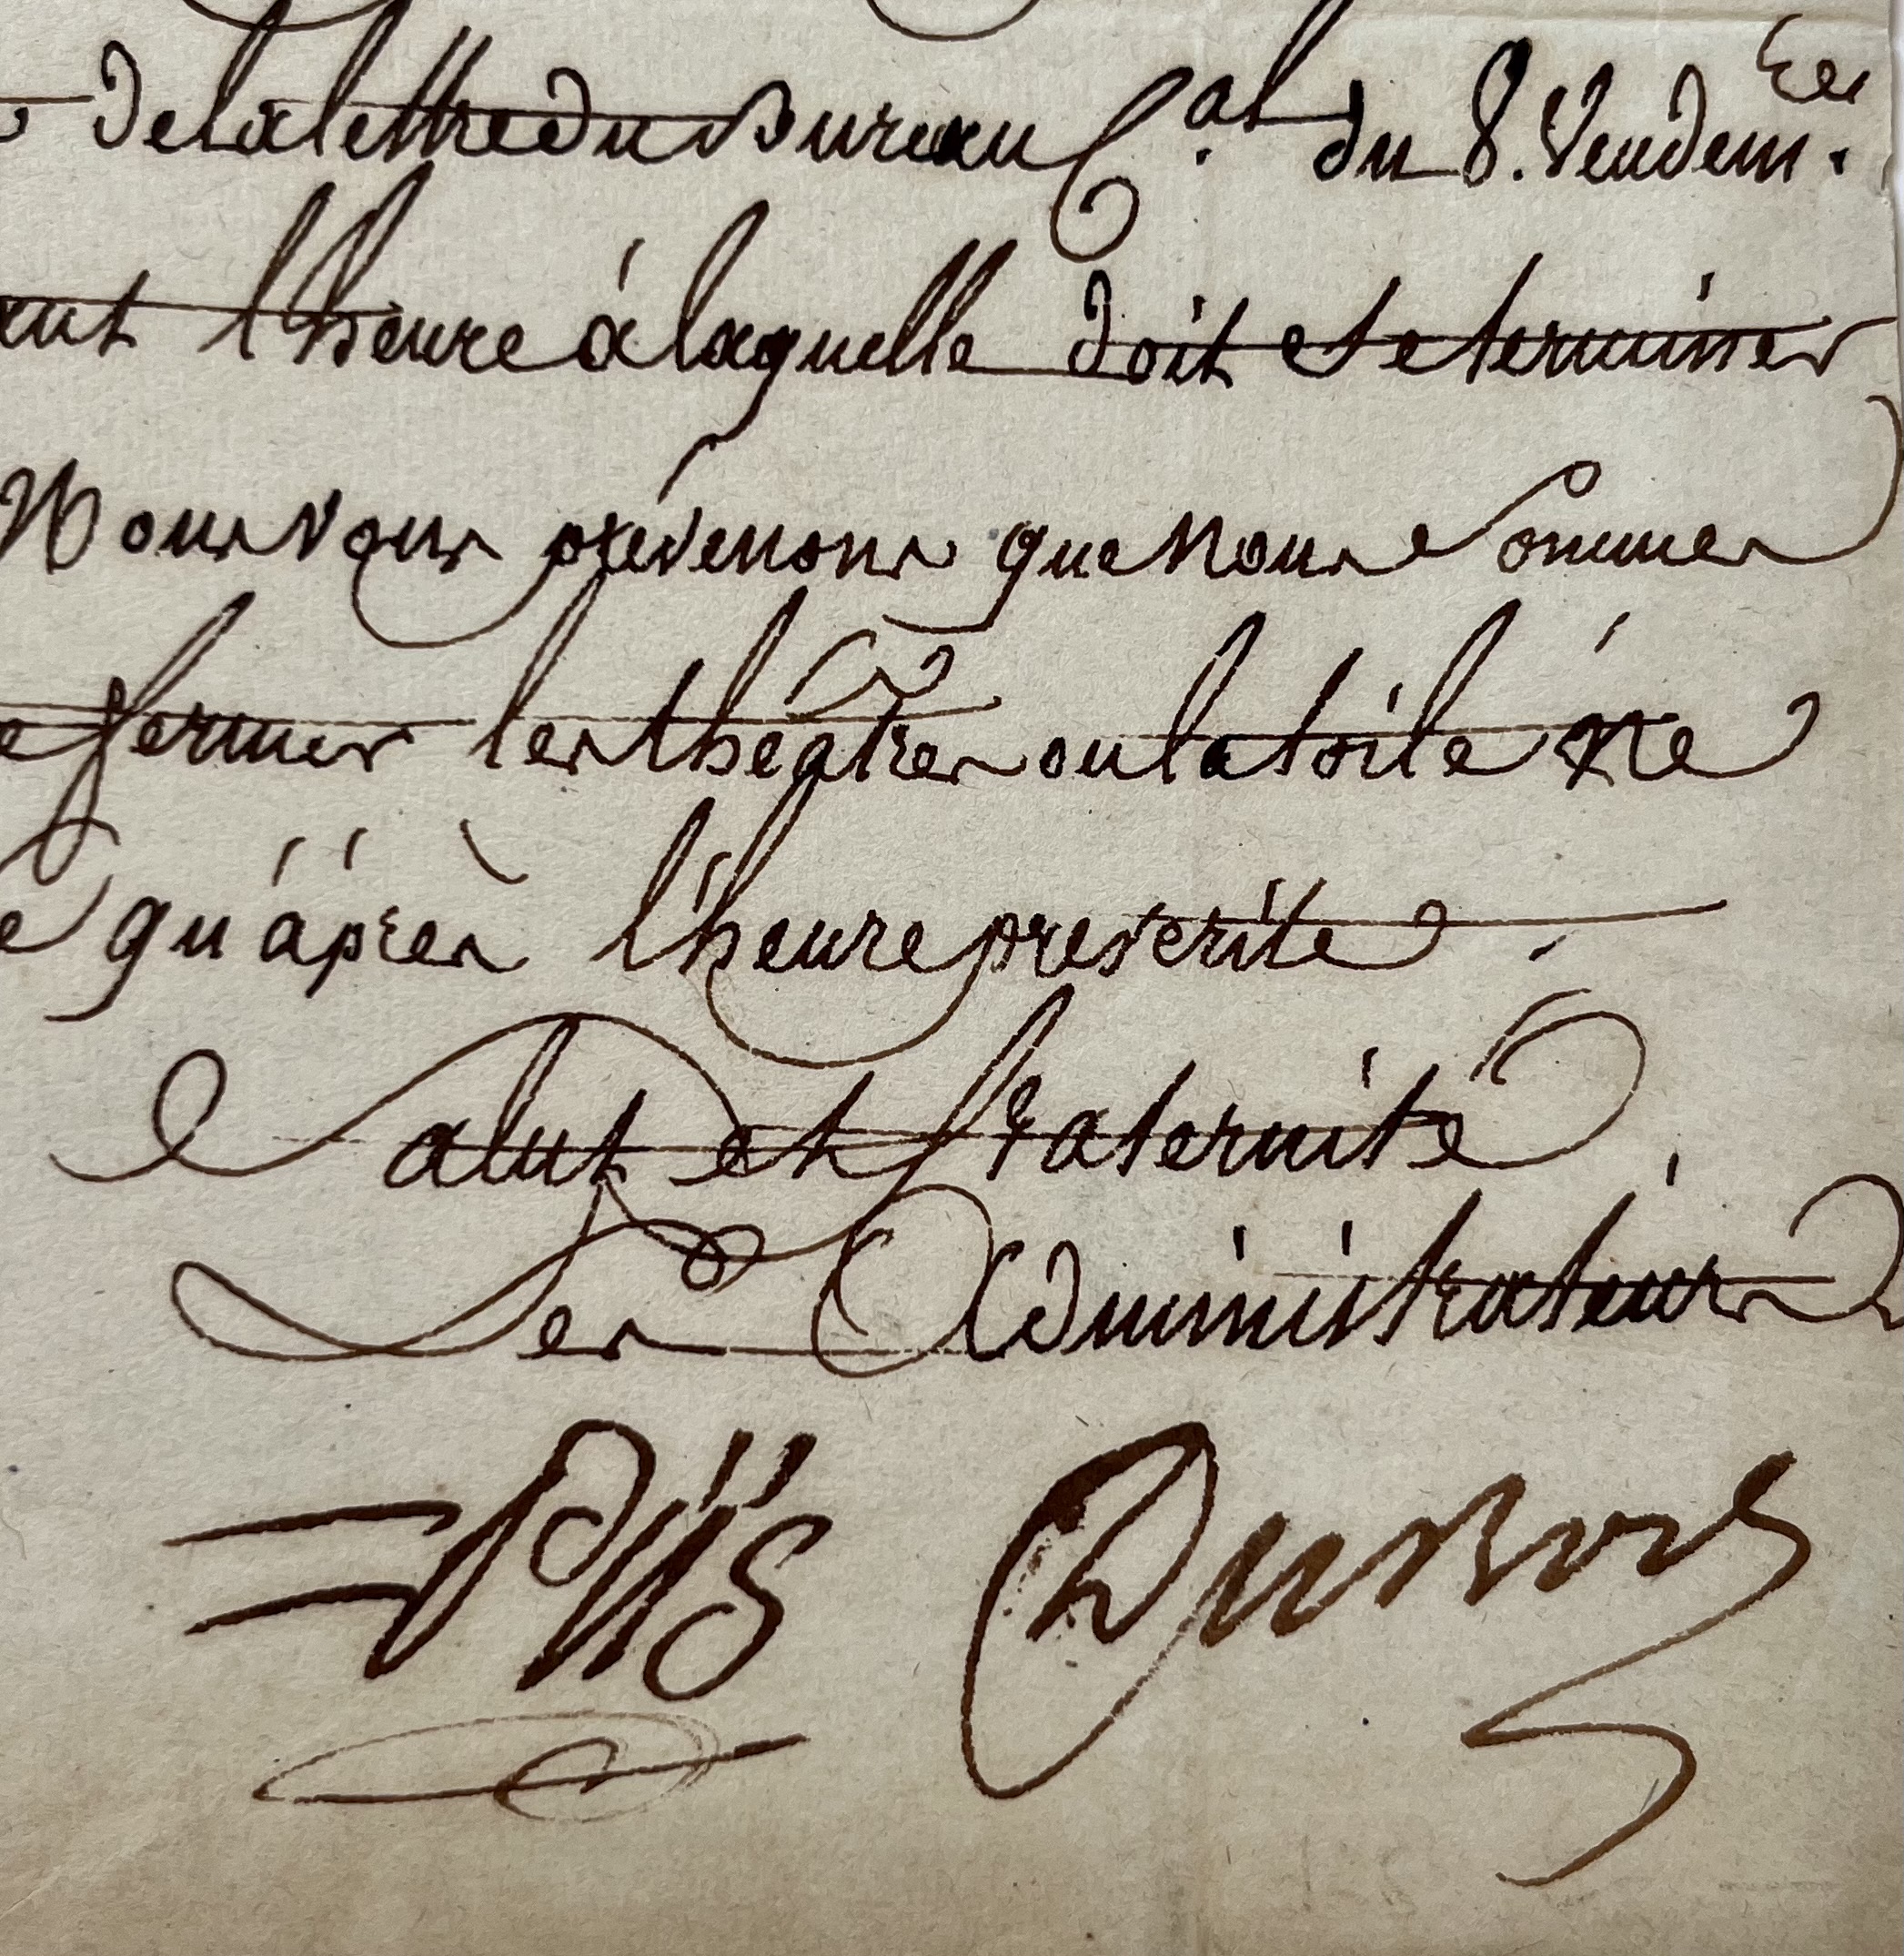 de la lettre du Bureau C.al du 8. Vendem.re
l'heure à laquelle doit se terminer
Nous vous prévenons que nous sommes
fermer les théâtres ou la toile ne
qu'áprès l'heure prescrite.
Salut et fraternité
Les Administrateurs
Piis Dubois